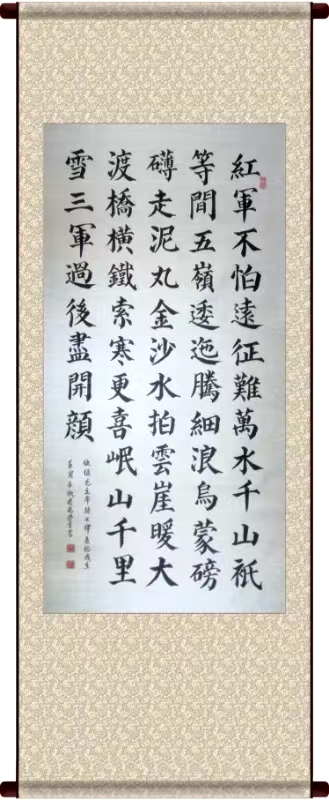 紅軍不怕遠征難萬水千山祇
等間五嶺逶迤騰細浪烏蒙磅
礴走泥丸金沙水拍雲崖暖大
渡橋橫鐵索寒更喜岷山千里
雪三軍過後盡開顏
毛主席詩七律